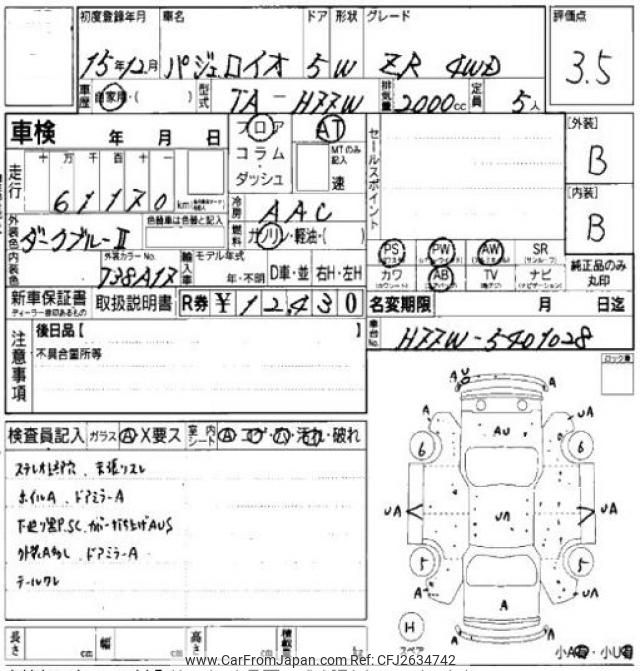 初度登録年月 車名 ドア 形状 グレード 評価点
15年12月 パジェロイオ 5 W ZR 4WD 3.5
車歴 自家用・( ) 型式 TA-H77W 排気量 2000cc 定員 5人
車検 年 月 日 フロア AT セールスポイント [外装]
コラム MTのみ記入 B
十万千百十一 ダッシュ 速
走行 61170km [内装]
冷房 AAC B
外装色 ダークブルーII 色替車は色番と記入 燃料 ガソリン・軽油・( )
PS PW AW SR
内装色 外装カラーNo. 輸入車 モデル年式 カワ AB TV ナビ 純正品のみ丸印
738A17 年・不明 D車・並 右H・左H
新車保証書 取扱説明書 R券 ¥12,430 名変期限 月 日迄
ディーラー捺印あるもの
注意事項 後日品【 】 車台No. H77W-5401028
不具合箇所等 ロック有
検査員記入 ガラス A・X要ス 室内シート A・コゲ・穴・汚れ・破れ
ホイルA、ドアミラーA
ドアミラーA
テールワレ
AU
A A
A UA
AU
6 6
UA UA UA
5 5
A UA
A
H
スペア
長さ cm 幅 cm 高さ cm kg 小A有・小U有
www.CarFromJapan.com Ref: CFJ2634742